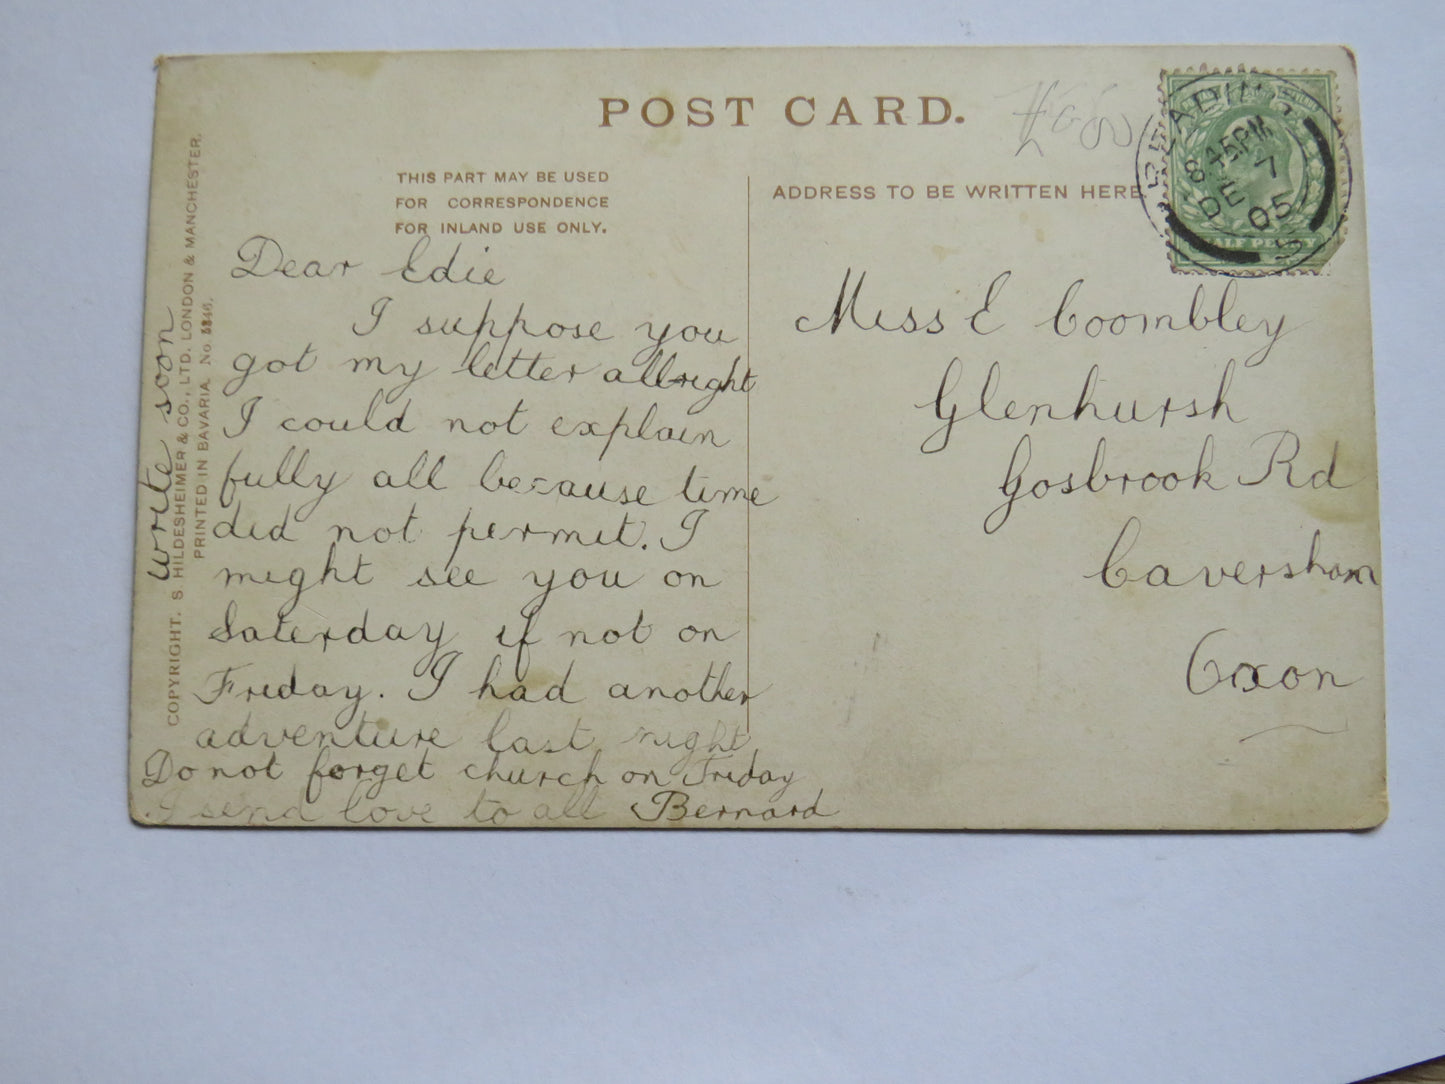 POST CARD.
THIS PART MAY BE USED
FOR CORRESPONDENCE
FOR INLAND USE ONLY.
ADDRESS TO BE WRITTEN HERE
READING
8 45PM
DE 7
05
HALF PENNY
Dear Edie
I suppose you
got my letter allright
I could not explain
fully all because time
did not permit. I
might see you on
Saterday if not on
Friday. I had another
adventure last night
Do not forget church on Friday
I send love to all Bernard
write soon
COPYRIGHT. S. HILDESHEIMER & CO., LTD. LONDON & MANCHESTER.
PRINTED IN BAVARIA. No 5346.
Miss E Coombley
Glenhursh
Gosbrook Rd
Caversham
Oxon